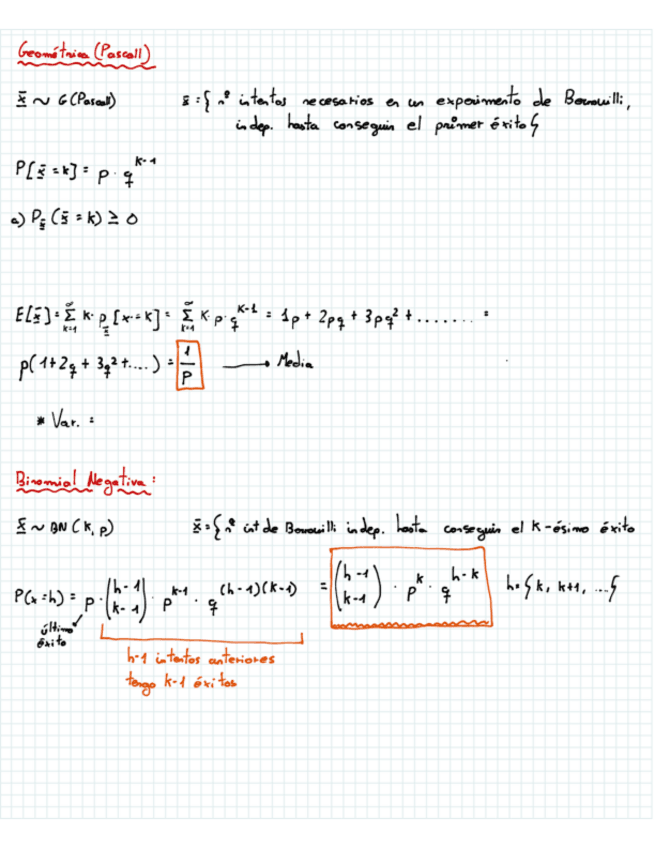 Geométrica (Pascall)
x̄ ~ G(Pascall) x̄ = { nº intentos necesarios en un experimento de Bernouilli,
indep. hasta conseguir el primer éxito}
P[x̄ = k] = p · q^(k-1)
a) P_x̄ (x̄ = k) ≥ 0
E[x̄] = Σ_(k=1)^∞ k · P_x̄ [x = k] = Σ_(k=1)^∞ k · p · q^(k-1) = 1p + 2pq + 3pq² + ....... =
p(1 + 2q + 3q² + ....) = 1/p → Media
* Var. =
Binomial Negativa:
x̄ ~ BN (k, p) x̄ = { nº int de Bernouilli indep. hasta conseguir el k-ésimo éxito
P(x = h) = p · (h-1 / k-1) · p^(k-1) · q^((h-1)(k-1)) = (h-1 / k-1) · p^k · q^(h-k) h = {k, k+1, ...}
último
éxito
h-1 intentos anteriores
tengo k-1 éxitos